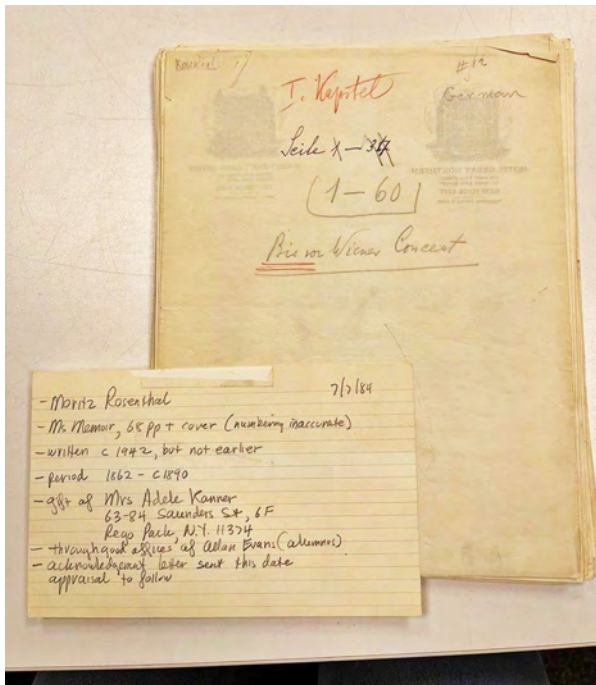 Rosenthal
#12
German
I. Kapitel
Seite 1 — 
(1—60)
Bis vor Wiener Concert
HOTEL GREAT NORTHERN
NEW YORK CITY
7/7/84
- Moritz Rosenthal
- Ms Memoir, 68 pp + cover (numbering inaccurate)
- written c 1942, but not earlier
- period 1862 - c1890
- gift of Mrs Adele Kanner
63-84 Saunders St, 6F
Rego Park, N.Y. 11374
- through good offices of Allan Evans (alumnos)
- acknowledgement letter sent this date
appraisal to follow